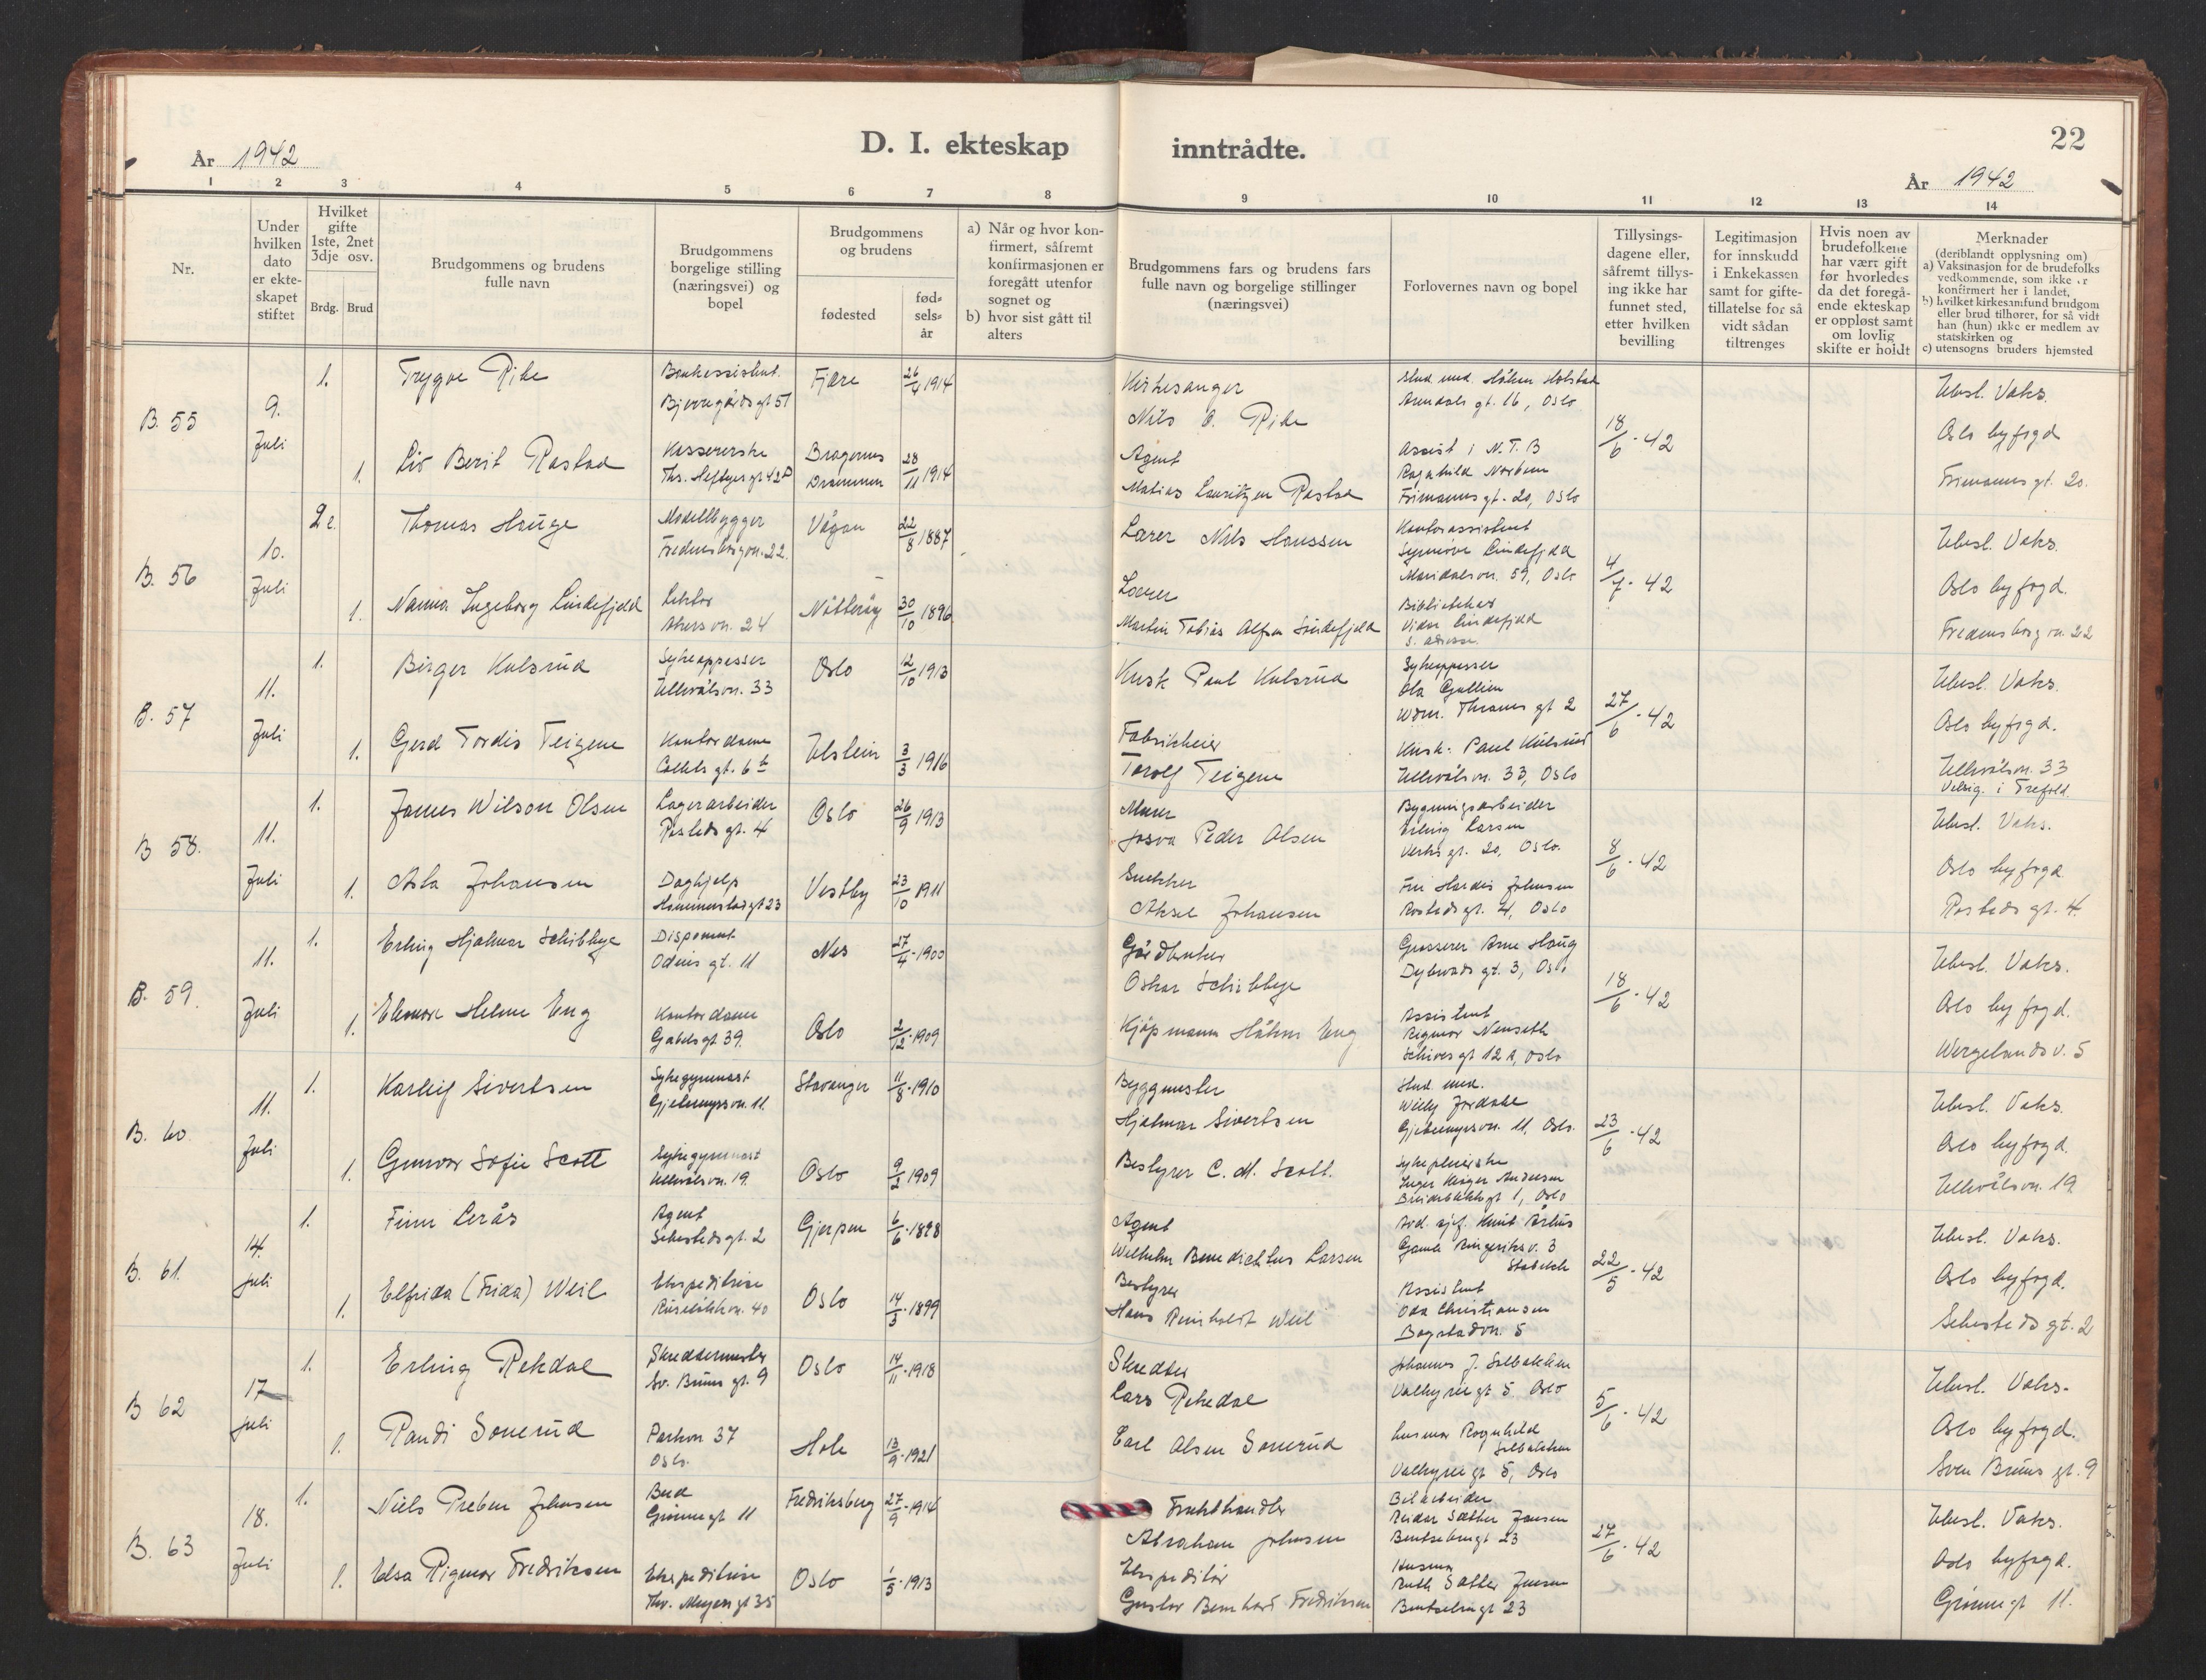 22
D. I. ekteskap inntrådte.
År 1942
År 1942
1 2 3 4 5 6 7 8 9 10 11 12 13 14
Nr.
Under
hvilken
dato
er ekte-
skapet
stiftet
Hvilket
gifte
1ste, 2net
3dje osv.
Brdg.
Brud
Brudgommens og brudens
fulle navn
Brudgommens
borgelige stilling
(næringsvei) og
bopel
Brudgommens
og brudens
fødested
fød-
sels-
år
a) Når og hvor kon-
firmert, såfremt
konfirmasjonen er
foregått utenfor
sognet og
b) hvor sist gått til
alters
Brudgommens fars og brudens fars
fulle navn og borgelige stillinger
(næringsvei)
Forlovernes navn og bopel
Tillysings-
dagene eller,
såfremt tillys-
ing ikke har
funnet sted,
etter hvilken
bevilling
Legitimasjon
for innskudd
i Enkekassen
samt for gifte-
tillatelse for så
vidt sådan
tiltrenges
Hvis noen av
brudefolkene
har vært gift
før hvorledes
da det foregå-
ende ekteskap
er oppløst samt
om lovlig
skifte er holdt
Merknader
(deriblandt opplysning om)
a) Vaksinasjon for de brudefolks
vedkommende, som ikke er
konfirmert her i landet,
b) hvilket kirkesamfund brudgom
eller brud tilhører, for så vidt
han (hun) ikke er medlem av
statskirken og
c) utensogns bruders hjemsted
B. 55
9.
Juli
1.
Trygve Rike
Bankassistent.
Bjerregårds gt 51
Fjære
26/4 1914
Kirkesanger
Nils O. Rike
Stud. med. Håkon Holstad
Arendals gt. 16, Oslo
18/6 - 42
Ubesl. Vaks.
Oslo byfogd
Frimanns gt. 20.
1.
Liv Berit Rastad
Kassererske
Ths. Heftyes gt 42B
Bragernes
Drammen
28/11 1914
Agent
Matias Lauritzen Rastad
Assist i N.T.B
Ragnhild
Frimanns gt. 20, Oslo
B. 56
10.
Juli
2.
Thomas Hauge
Modellbygger
Fredensborgvn. 22.
Vågan
22/8 1887
Lærer Nils Hanssen
Kontorassistent
Synnøve Lindefjeld
Maridalsvn. 59, Oslo
4/7 - 42
Ubesl. Vaks.
Oslo byfogd.
Fredensborgvn. 22
1.
Nanna Ingeborg Lindefjeld
Lektor
Akersvn. 24
Nøtterøy
30/10 1896
Lærer
Martin Tobias Alfsen Lindefjeld
Bibliotekar
Vidar Lindefjeld
s. adresse
B. 57
11.
Juli
1.
Birger Kulsrud
Sykepasser
Ullevålsvn. 33
Oslo
12/10 1913
Kusk Paul Kulsrud
Sykepasser
Ola Gullien
Wdm. Thranes gt 2
27/6 - 42
Ubesl. Vaks.
Oslo byfogd.
Ullevålsvn. 33
Velsig. i Trefold.
1.
Gerd Tordis Teigene
Kontordame
Colletts gt. 6b
Ulstein
3/3 1916
Fabrikkeier
Torolf Teigene
Kusk. Paul Kulsrud
Ullevålsvn. 33, Oslo
B 58.
11.
Juli
1.
James Wilson Olsen
Lagerarbeider
Rosteds gt. 4
Oslo
26/9 1913
Murer
Josva Peder Olsen
Bygningsarbeider
Erling Larsen
Verks gt. 20, Oslo.
8/6 - 42
Ubesl. Vaks.
Oslo byfogd
Rosteds gt. 4.
1.
Asla Johansen
Daghjelp
Hammersborg gt 23
Vestby
23/10 1911
Snekker
Aksel Johansen
Fru Hardis Johnsen
Rosteds gt. 4, Oslo
B. 59.
11.
Juli
1.
Erling Hjalmar Schibbye
Disponent
Odins gt. 11
Nes
27/4 - 1900
Gårdbruker
Oskar Schibbye
Grosserer Arne Haug
Dybwads gt. 3, Oslo
18/6 - 42
Ubesl. Vaks.
Oslo byfogd.
Wergelandsv. 5
1.
Elenore Helene Eng
Kontordame
Gabels gt 39.
Oslo
2/12 - 1909
Kjøpmann Håkon Eng
Assistent
Rigmor Nenseth
Schives gt 12 A, Oslo
B. 60.
11.
Juli
1.
Karleif Sivertsen
Sykegymnast
Gjetemyrsvn. 11.
Stavanger
11/8 - 1910
Byggmester
Hjalmar Sivertsen
Stud. med.
Willy Jordahl
Gjetemyrsvn. 11, Oslo.
23/6 - 42
Ubesl. Vaks.
Oslo byfogd.
Ullevålsvn. 19
1.
Gunvor Sofie Scott
Sykegymnast
Ullevålsvn. 19.
Oslo
9/2 - 1909
Bestyrer C. M. Scott.
Sykepleierske
Inger Andersen
gt 1, Oslo
B. 61.
14.
juli
1.
Finn Lerås
Agent
Sehesteds gt. 2
Gjerpen
6/6 - 1898
Agent
Wilhelm Benedichtus Larsen
Avd. sjef. Knut Århus
Gamle Ringeriksv. 3
Stabekk
22/5 - 42
Ubesl. Vaks.
Oslo byfogd.
Sehesteds gt. 2
1.
Elfrida (Frida) Weil
Ekspeditrise
Ruseløkkvn. 40
Oslo
14/3 - 1899
Bestyrer
Hans Reinholdt Weil
Assistent
Oda Christiansen
Bogstadvn. 5
B 62
17
juli
1.
Erling Rekdal
Skreddermester
Sv. Bruns gt. 9
Oslo
14/11 - 1918
Skredder
Lars Rekedal
Johannes J. Solbakken
Valkyrie gt 5. Oslo
5/6 - 42
Ubesl. Vaks.
Oslo byfogd.
Sven Bruns gt. 9
1.
Randi Sonerud
Parkvn 37
Oslo.
Hole
13/9 - 1921
Carl Olsen Sonerud
husmor Ragnhild
Solbakken
Valkyrie gt 5, Oslo
B. 63
18.
Juli
1.
Niels Preben Johnsen
Bud
Grønne gt 11
Fredriksberg
27/9 - 1914
Frukthandler
Abraham Johnsen
Bilarbeider
Reidar Sæther Jensen
Bentsebrugt 23
27/6 - 42
Ubesl. Vaks.
Oslo byfogd.
Grønne gt 11.
1.
Elsa Rigmor Fredriksen
Ekspeditrise
Thv. Meyers gt 35
Oslo
1/5 - 1913
Ekspeditør
Gustav Bernhard Fredriksen
Husmor
Ruth Sæther Jensen
Bentsebrugt 23